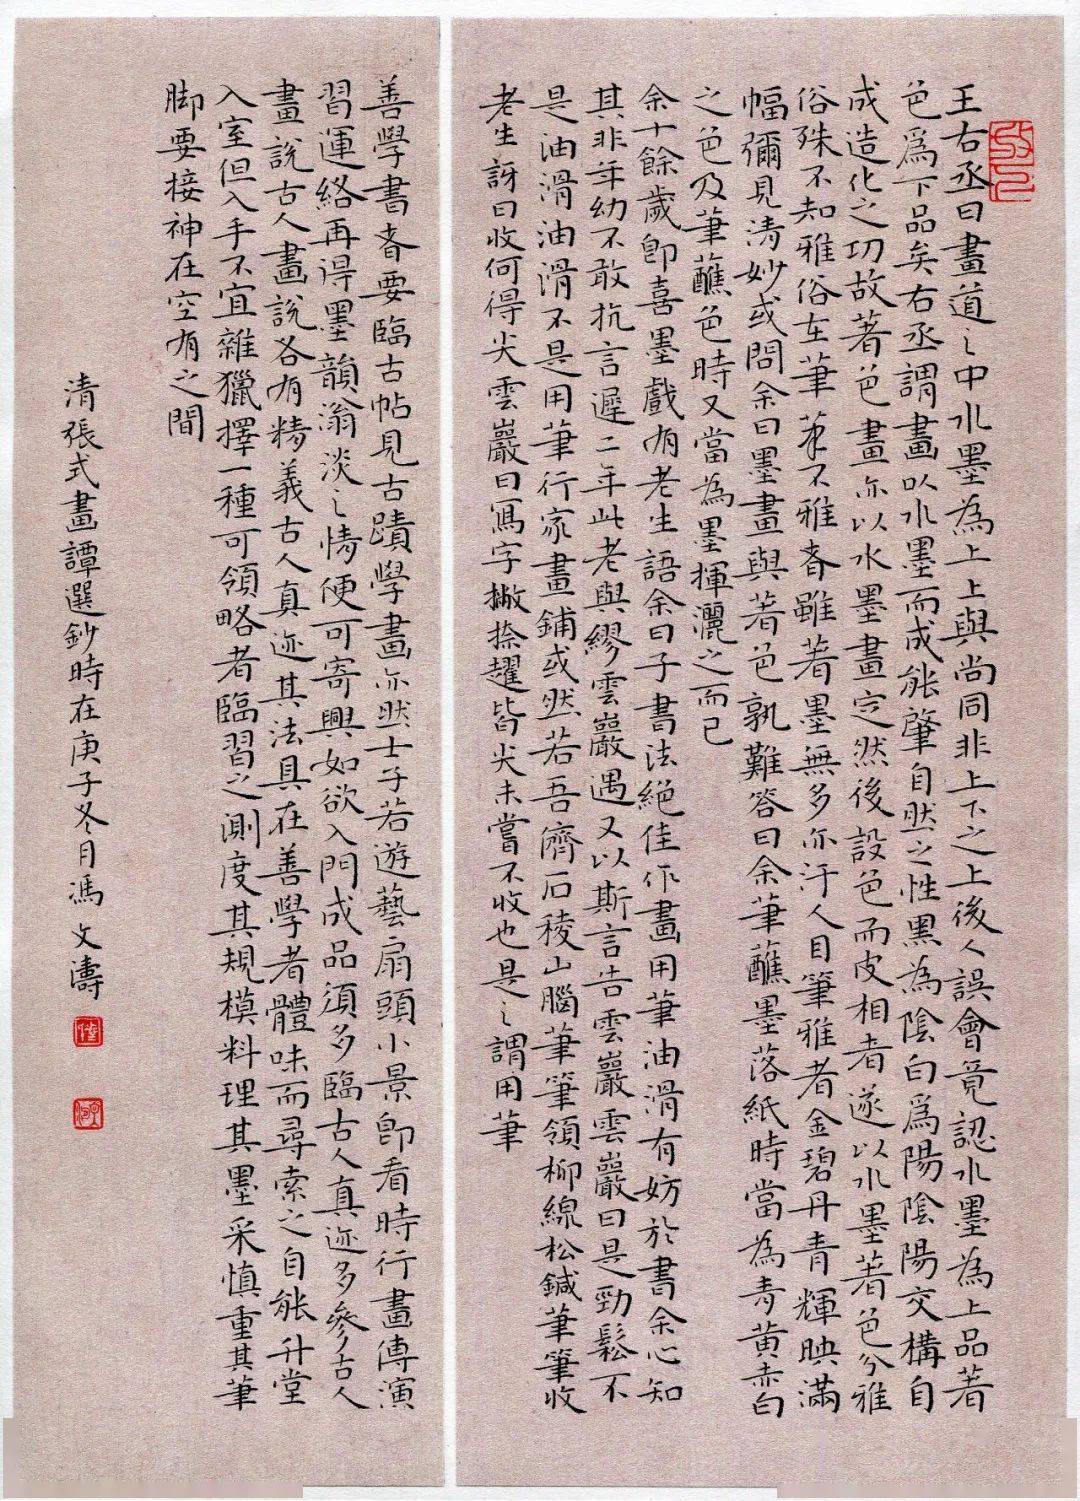 王右丞曰畫道之中水墨為上上與尚同非上下之上後人誤會竟認水墨為上品著
色爲下品矣右丞謂畫以水墨而成能肇自然之性黑為陰白爲陽陰陽交構自
成造化之功故著色畫亦以水墨畫定然後設色而皮相者遂以水墨著色分雅
俗殊不知雅俗在筆筆不雅者雖著墨無多亦汙人目筆雅者金碧丹青輝映滿
幅彌見清妙或問余曰墨畫與著色孰難答曰余筆蘸墨落紙時當為青黃赤白
之色及筆蘸色時又當為墨揮灑之而已
余十餘歲即喜墨戲有老生語余曰子書法絕佳作畫用筆油滑有妨於書余心知
其非年幼不敢抗言遲二年此老與繆雲巖遇又以斯言告雲巖雲巖曰是勁鬆不
是油滑油滑不是用筆行家畫鋪或然若吾儕石稜山腦筆筆領柳線松鍼筆筆收
老生訝曰收何得尖雲巖曰寫字撇捺趯皆尖未嘗不收也是之謂用筆
善學書者要臨古帖見古蹟學畫亦然士子若遊藝扇頭小景即看時行畫傳演
習運絡再得墨韻滃淡之情便可寄興如欲入門成品須多臨古人真迹多參古人
畫說古人畫說各有精義古人真迹其法具在善學者體味而尋索之自能升堂
入室但入手不宜雜獵擇一種可領略者臨習之測度其規模料理其墨采慎重其筆
腳要接神在空有之間
清張式畫譚選鈔時在庚子冬月馮文濤